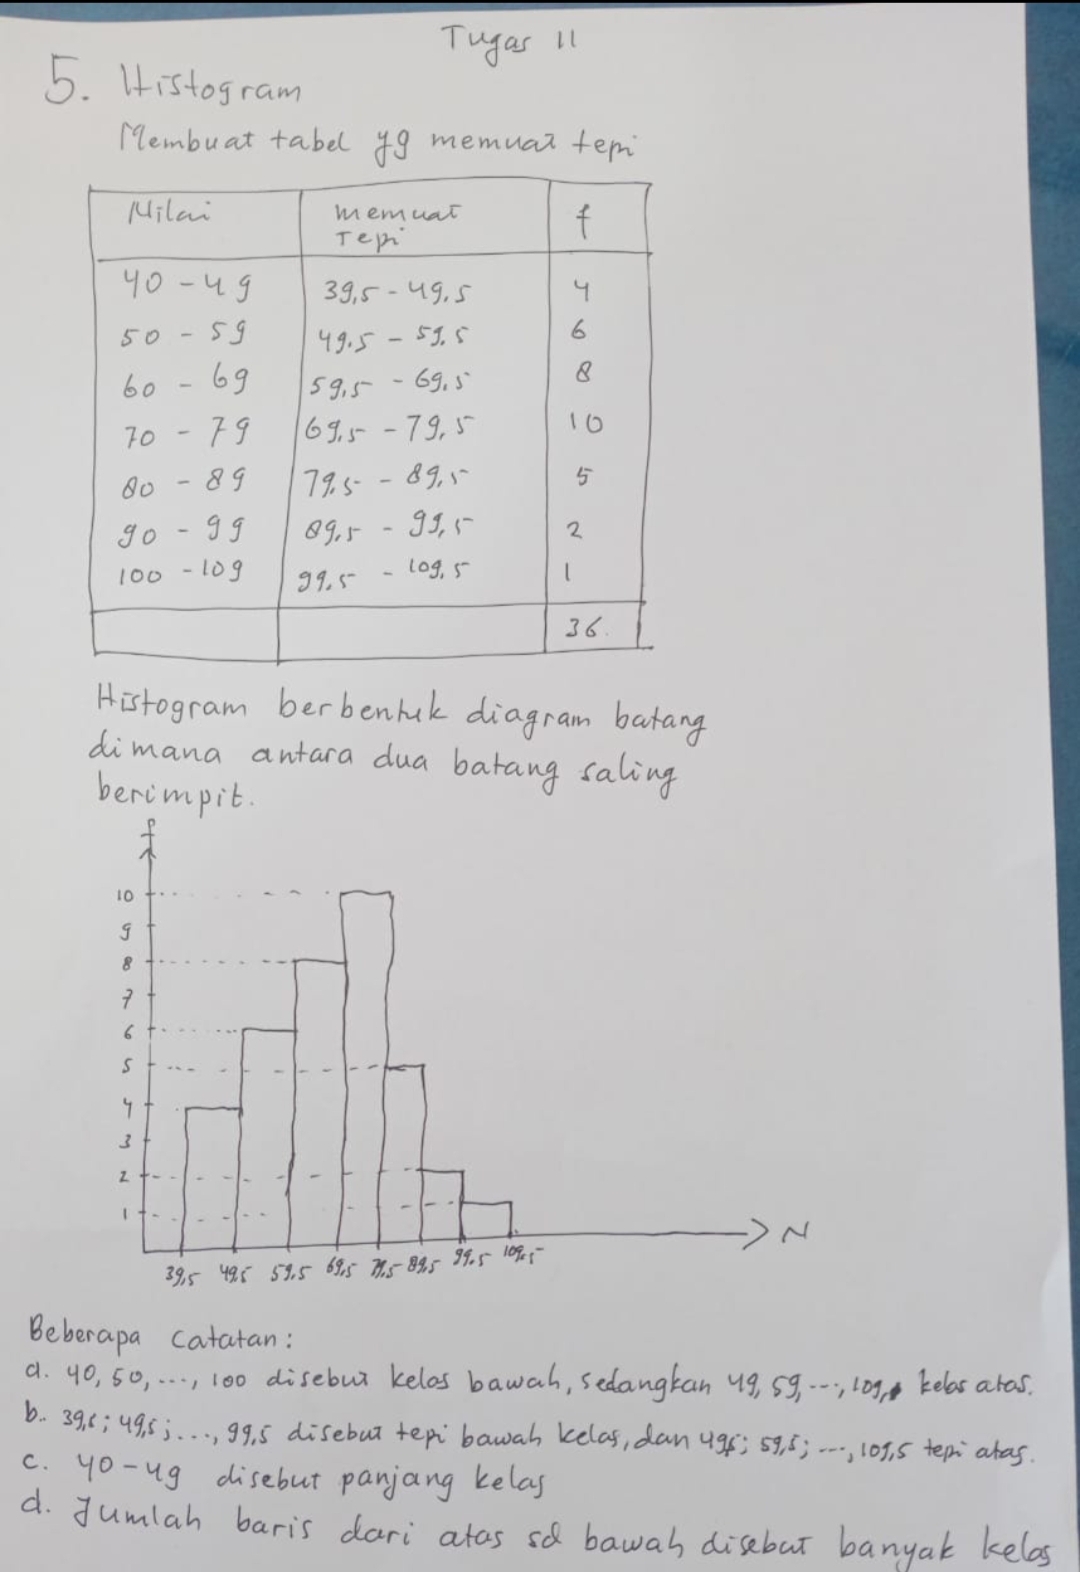 Tugas 11
5. Histogram
Membuat tabel yg memuat tepi
Nilai memuat Tepi f
40 - 49 39,5 - 49,5 4
50 - 59 49.5 - 59,5 6
60 - 69 59,5 - 69,5 8
70 - 79 69,5 - 79,5 10
80 - 89 79.5 - 89,5 5
90 - 99 89,5 - 99,5 2
100 - 109 99,5 - 109,5 1
36.
Histogram berbentuk diagram batang
dimana antara dua batang saling
berimpit.
f
10
9
8
7
6
5
4
3
2
1
39,5 49,5 59.5 69,5 79.5 89,5 99.5 109.5 N
Beberapa catatan:
a. 40, 50, ..., 100 disebut kelas bawah, sedangkan 49, 59, ..., 109, kelas atas.
b. 39,5; 49,5; ..., 99,5 disebut tepi bawah kelas, dan 49,5; 59,5; ..., 109,5 tepi atas.
c. 40-49 disebut panjang kelas
d. Jumlah baris dari atas sd bawah disebut banyak kelas